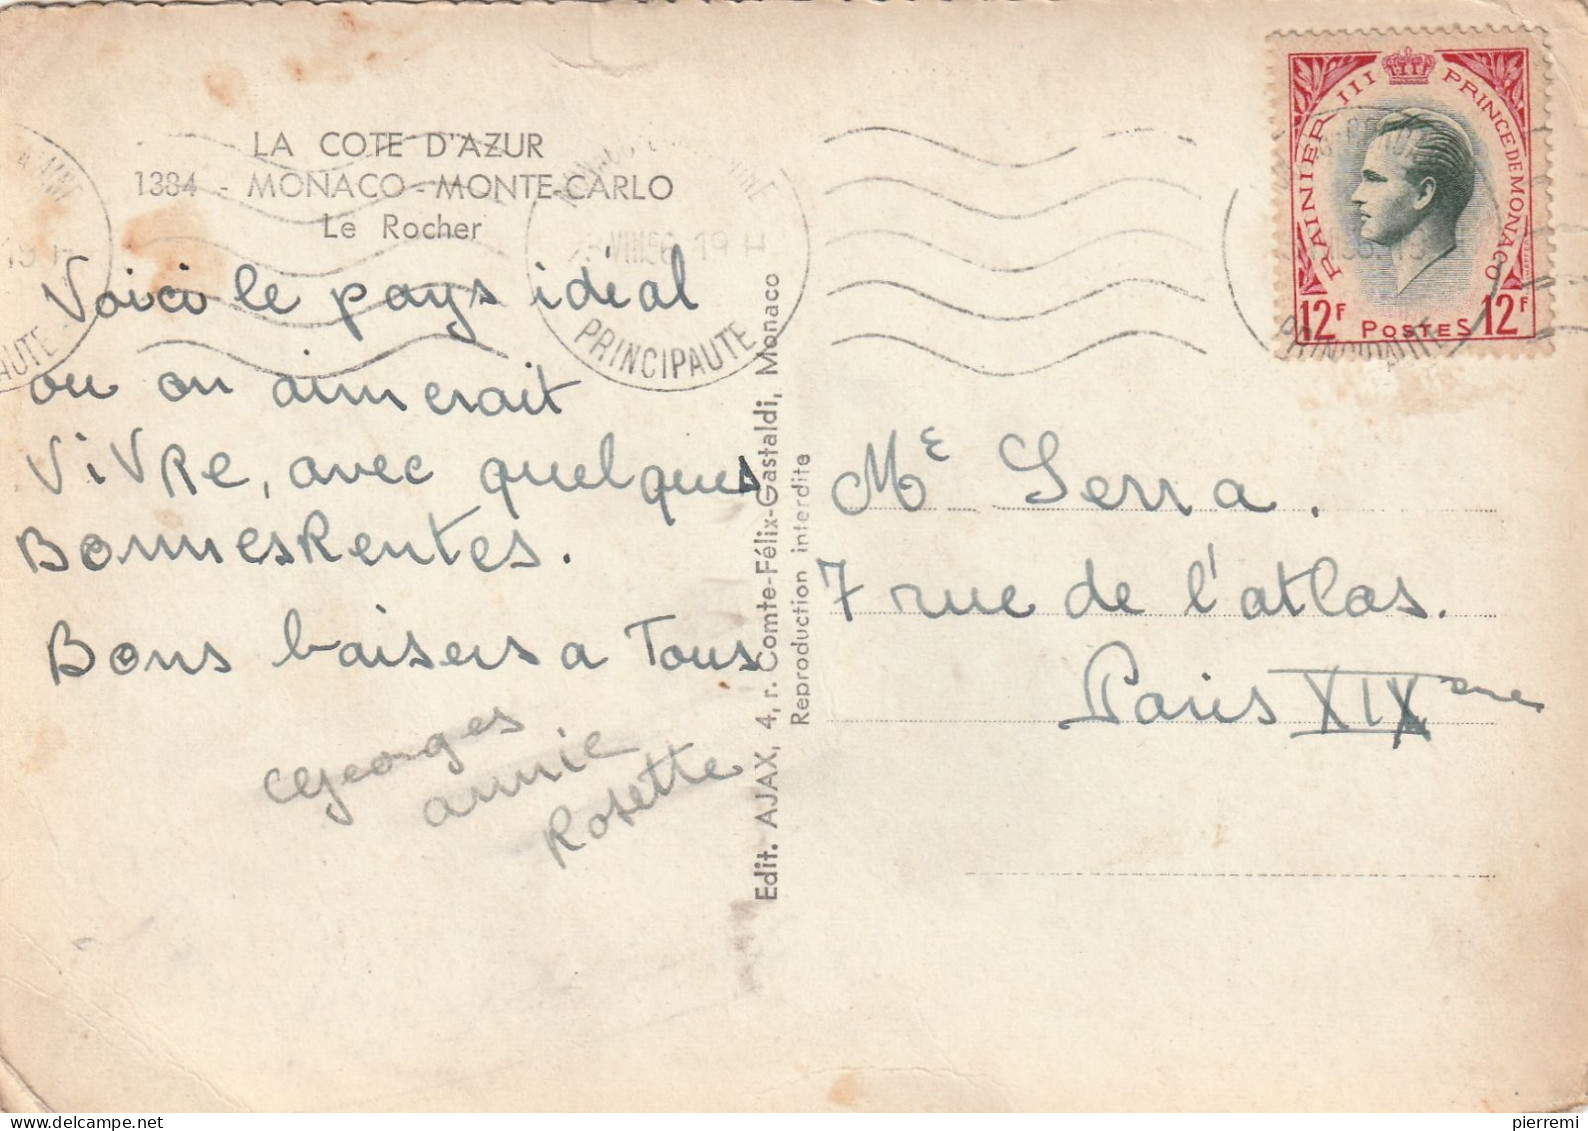 LA COTE D'AZUR
1384 - MONACO - MONTE-CARLO
Le Rocher
Voici le pays idéal
ou on aimerait
ViVRe, avec quelques
BonnesRentes.
Bons baisers a Tous
Georges
annie
Rosette
PRINCIPAUTE
VIII 56
19 H
Edit. AJAX, 4, r. Comte-Félix-Gastaldi, Monaco
Reproduction interdite
RAINIER III PRINCE DE MONACO
12F POSTES 12F
PRINCIPAUTE
Me Serra.
7 rue de l'atlas.
Paris XIXeme
pierremi